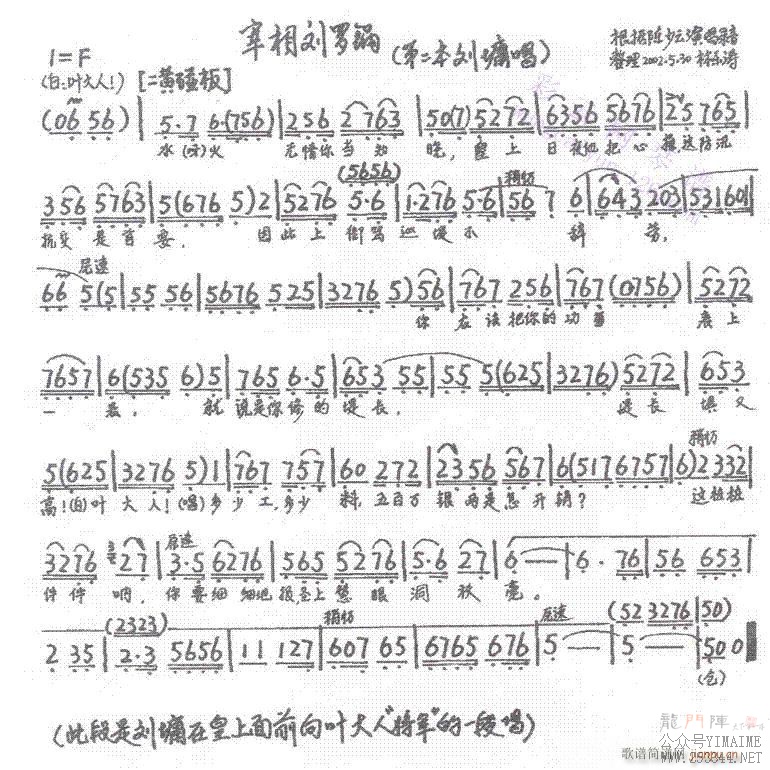 宰相刘罗锅(第二本刘墉唱)
1=F
(白:叶大人!) [二黄碰板]
根据陈少云演唱录音
整理2002.5.30
(06 56) | 5·7 6·(756) | 256 2 763 | 50(7) 5272 | 6356 5676 | 25 765 |
水 火 无情你当知晓, 皇上日夜他把心操这防汛
(5656) 稍切
356 5763 | 5(676 5)2 | 5276 5·6 | 1·276 5·6 | 56 7 6 | 643 203 | 531601 |
抗灾是首要, 因此上御驾巡堤不辞劳,
尾速
66 5(5 | 55 56 | 5676 525 | 3276 5)56 | 767 256 | 767 (0756) | 5272 |
你应该把你的功 表上
7657 | 6(535 6)5 | 765 6·5 | 653 55 | 55 5(625 | 3276) 5272 | 653 |
一表, 就说是你修的堤长, 堤长堤又
稍切
5(625 | 3276 5)1 | 767 757 | 60 272 | 2356 567 | 6(517 6757 | 6)2 332 |
高!(白)叶大人!(唱)多少工,多少料,五百万银两是怎开销? 这桩桩
尾速
3276 27 | 3·5 6276 | 565 5276 | 5·6 27 | 6 — | 6· 76 | 56 653 |
件件呐, 你要细细地报,圣上慧眼洞秋毫。
(2323) 稍切 尾速 (52 3276 | 50)
2 35 | 2·3 5656 | 11 127 | 607 65 | 6765 676 | 5 — | 5 — | 500
(仓)
(此段是刘墉在皇上面前向叶大人"将军"的一段唱)
龍門陣
公众号YIMAIME
歌谱简谱网
www.253844.NET